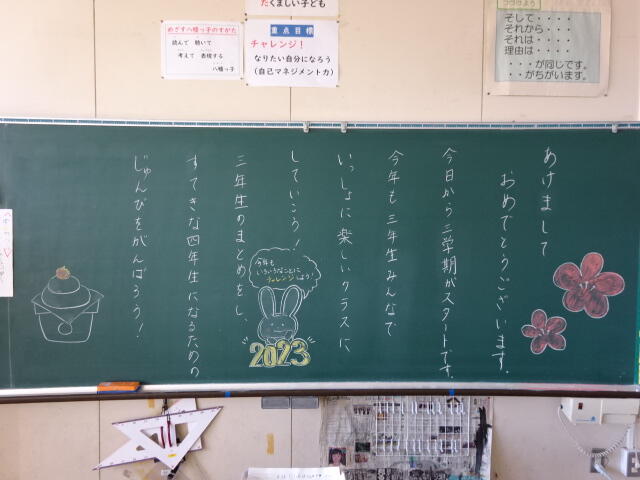 たくましい子ども
めざす八幡っ子のすがた
読んで 聴いて
考えて 表現する
八幡っ子
重点目標
チャレンジ！
なりたい自分になろう
（自己マネジメント力）
つづけよう
そして・・・・
それから・・・・
それは・・・・
理由は・・・・
・・・が同じです。
・・がちがいます。
あけまして
おめでとうございます。
今日から三学期がスタートです。
今年も三年生みんなで
いっしょに楽しいクラスに
していこう！
三年生のまとめをし、
すてきな四年生になるための
じゅんびをがんばろう！
今年も
いろいろなことに
チャレンジしよう！
2023